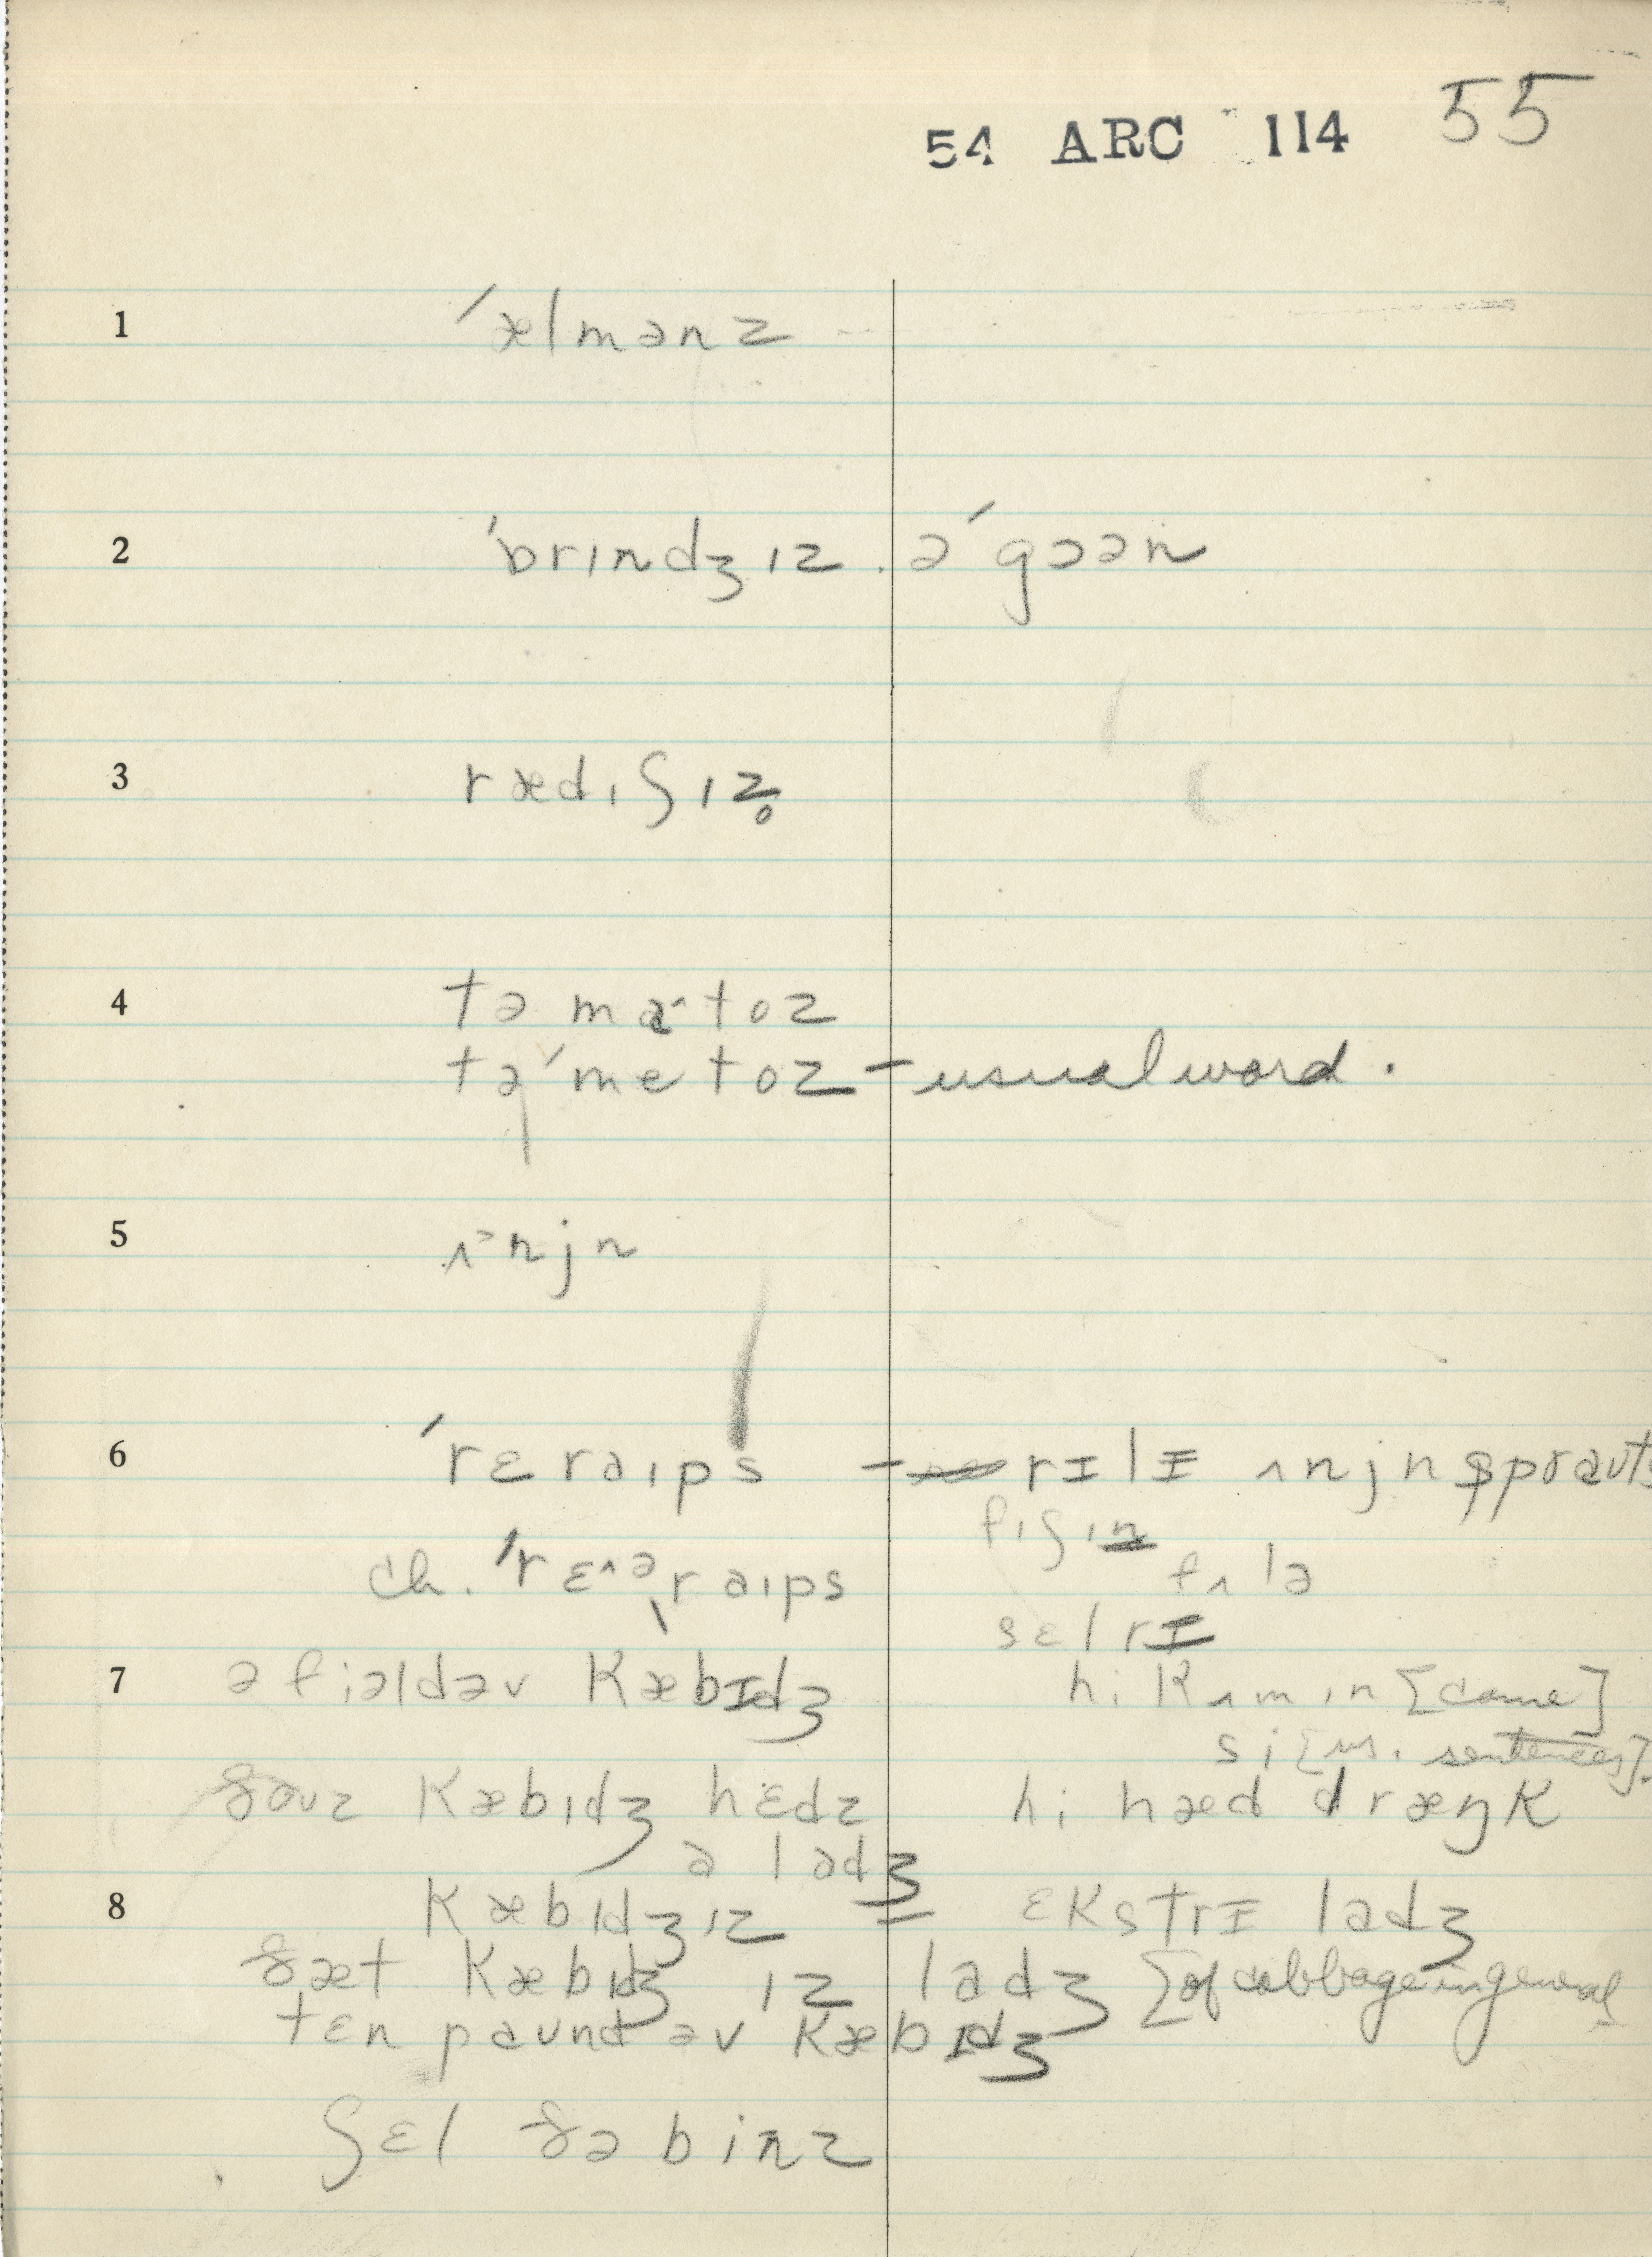 54 ARC 114 55
1 ˈælmənz
2 ˈbrɪndʒɪz . əˈgɔən
3 rædɪʃɪz̥
4 təmatoz
təˈmetoz – usual word.
5 ʌnjn
6 ˈrɛraɪps – rɪlɪ ʌnjn sprauts
fɪʃɪn
ch. ˈrɛᴧəraɪps fʌlə
sɛlrɪ
7 ə fiəldəv kæbɪdʒ hi kʌm ɪn [came]
si [us. sentences].
ðouz kæbɪdʒ hɛdz hi hæd dræŋk
ə ladʒ
8 kæbɪdʒɪz = ɛkstrɪ ladʒ
ðæt kæbɪdʒ ɪz ladʒ [of cabbage in general
tɛn paund əv kæbɪdʒ
ʃɛl ðə binz